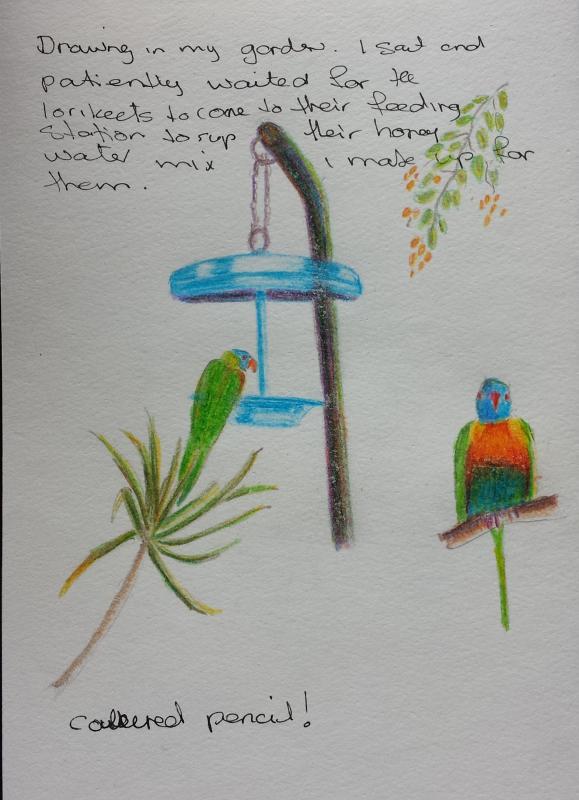 Drawing in my garden. I sat and
patiently waited for the
lorikeets to come to their feeding
station to sup their honey
water mix I make up for
them.
coloured pencil!